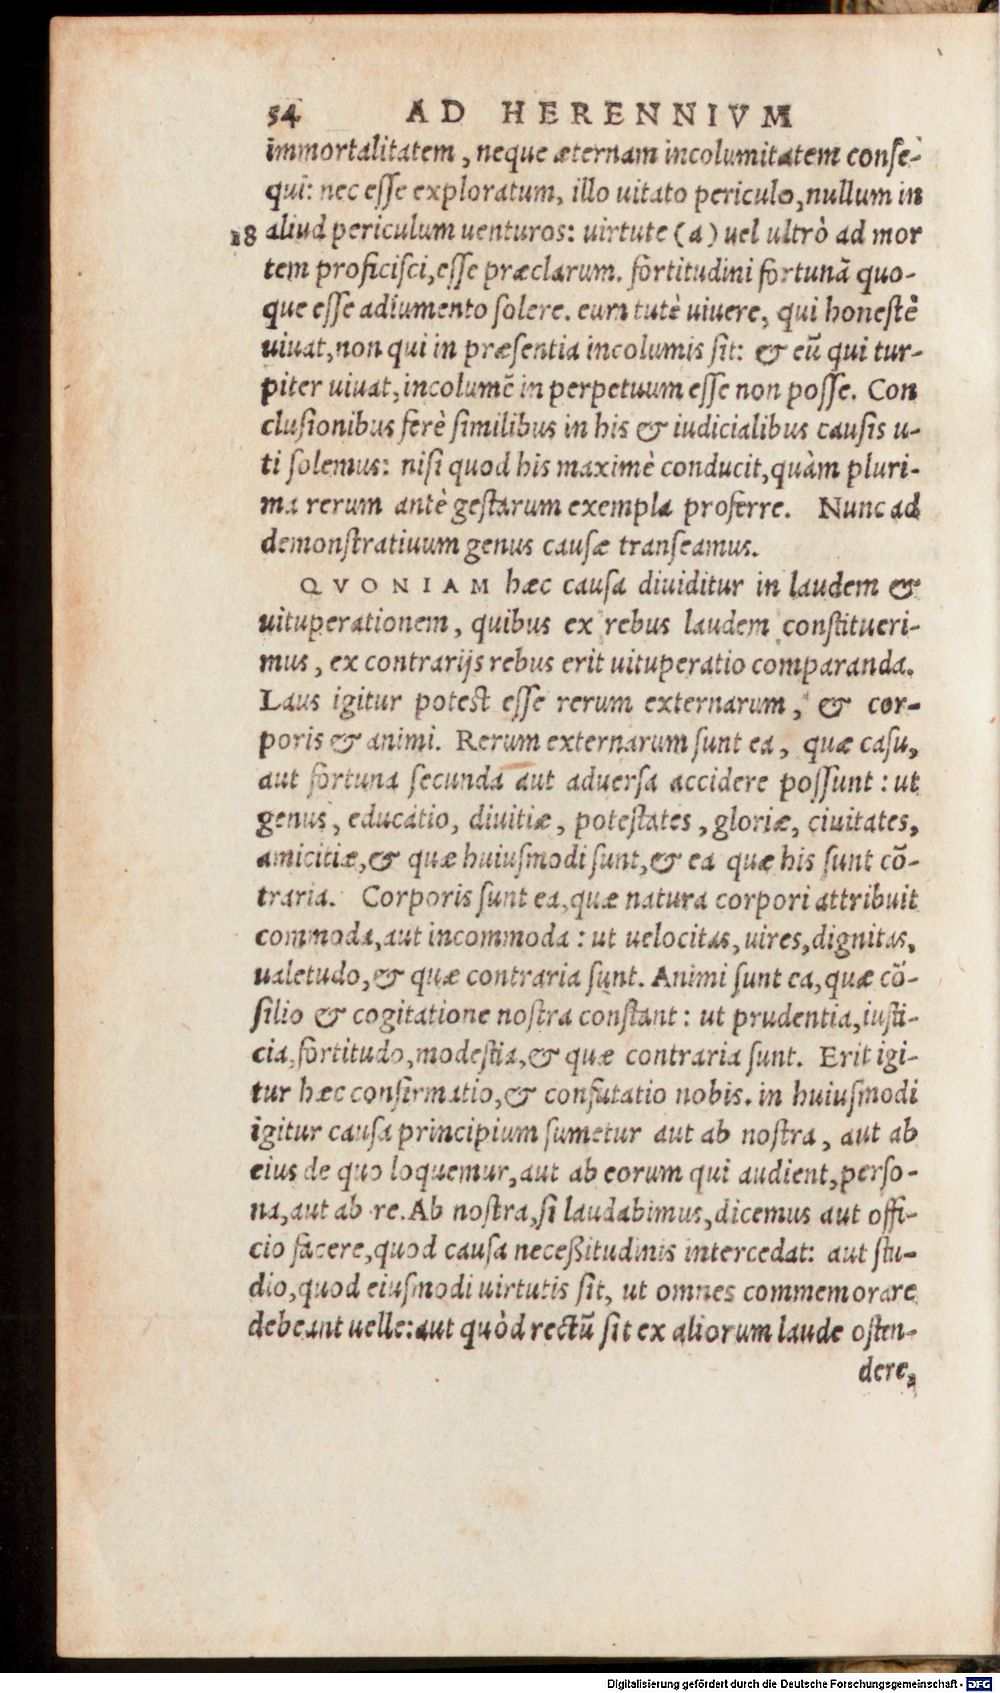 54 AD HERENNIVM
immortalitatem, neque æternam incolumitatem conse-
qui: nec esse exploratum, illo uitato periculo, nullum in
18 aliud periculum uenturos: uirtute (a) uel ultrò ad mor
tem proficisci, esse præclarum. fortitudini fortunā quo-
que esse adiumento solere. eum tutè uiuere, qui honestè
uiuat, non qui in præsentia incolumis sit: & eū qui tur-
piter uiuat, incolumē in perpetuum esse non posse. Con
clusionibus ferè similibus in his & iudicialibus causis u-
ti solemus: nisi quod his maximè conducit, quàm pluri-
ma rerum antè gestarum exempla proferre. Nunc ad
demonstratiuum genus causæ transeamus.
QVONIAM hæc causa diuiditur in laudem &
uituperationem, quibus ex rebus laudem constitueri-
mus, ex contrarijs rebus erit uituperatio comparanda.
Laus igitur potest esse rerum externarum, & cor-
poris & animi. Rerum externarum sunt ea, quæ casu,
aut fortuna secunda aut aduersa accidere possunt: ut
genus, educatio, diuitiæ, potestates, gloriæ, ciuitates,
amicitiæ, & quæ huiusmodi sunt, & ea quæ his sunt cō-
traria. Corporis sunt ea, quæ natura corpori attribuit
commoda, aut incommoda: ut uelocitas, uires, dignitas,
ualetudo, & quæ contraria sunt. Animi sunt ea, quæ cō-
silio & cogitatione nostra constant: ut prudentia, iusti-
cia, fortitudo, modestia, & quæ contraria sunt. Erit igi-
tur hæc confirmatio, & confutatio nobis. in huiusmodi
igitur causa principium sumetur aut ab nostra, aut ab
eius de quo loquemur, aut ab eorum qui audient, perso-
na, aut ab re. Ab nostra, si laudabimus, dicemus aut offi-
cio facere, quod causa necessitudinis intercedat: aut stu-
dio, quod eiusmodi uirtutis sit, ut omnes commemorare
debeant uelle: aut quòd rectū sit ex aliorum laude osten-
dere,
Digitalisierung gefördert durch die Deutsche Forschungsgemeinschaft - DFG